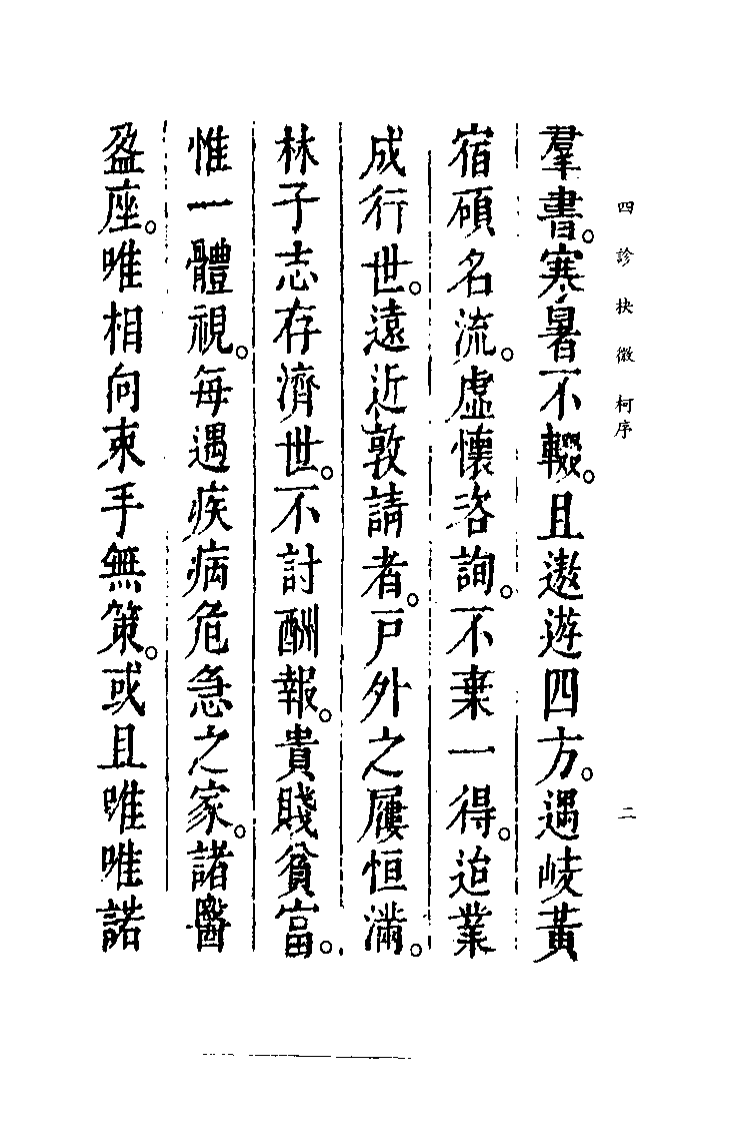 四診抉微 柯序 二
羣書。寒暑不輟。且遨遊四方。遇岐黃
宿碩名流。虛懷咨詢。不棄一得。迨業
成行世。遠近敦請者。戸外之屨恒滿。
林子志存濟世。不討酬報。貴賤貧富。
惟一體視。每遇疾病危急之家。諸醫
盈座。唯相向束手無策。或且唯唯諾